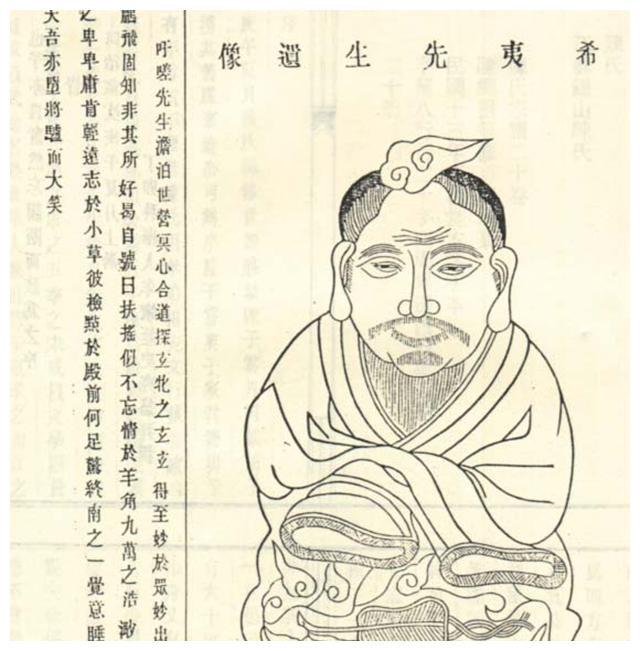 希夷先生遺像
吁嗟先生澹泊世營冥心合道探玄牝之玄玄得至妙於眾妙出
飛固知非其所好曷自號曰扶搖似不忘情於羊角九萬之浩
卑卑庸肯輕遠志於小草彼檢點於殿前何足驚終南之一覺意睡
天吾亦墮將驢而大笑